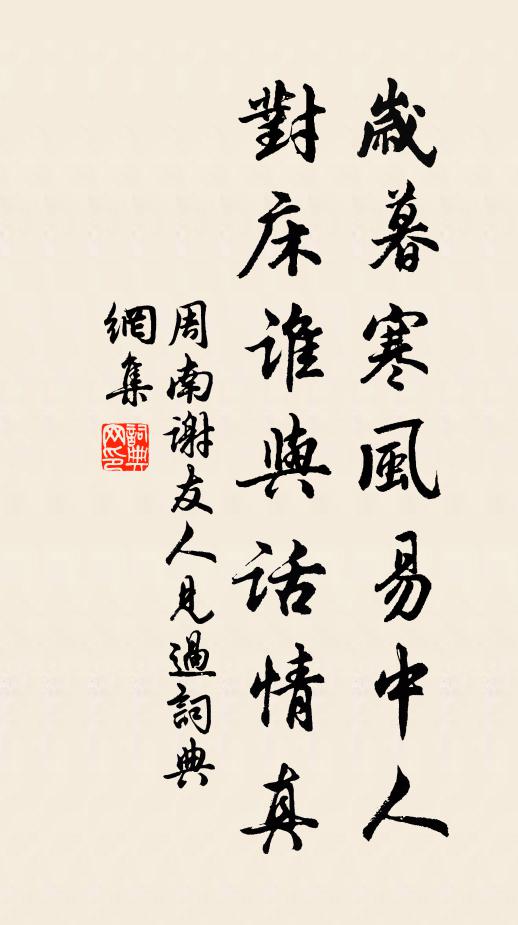 歲暮寒風易中人
對床誰與話情真
周南謝友人見過詞典
網集
詞典
网印